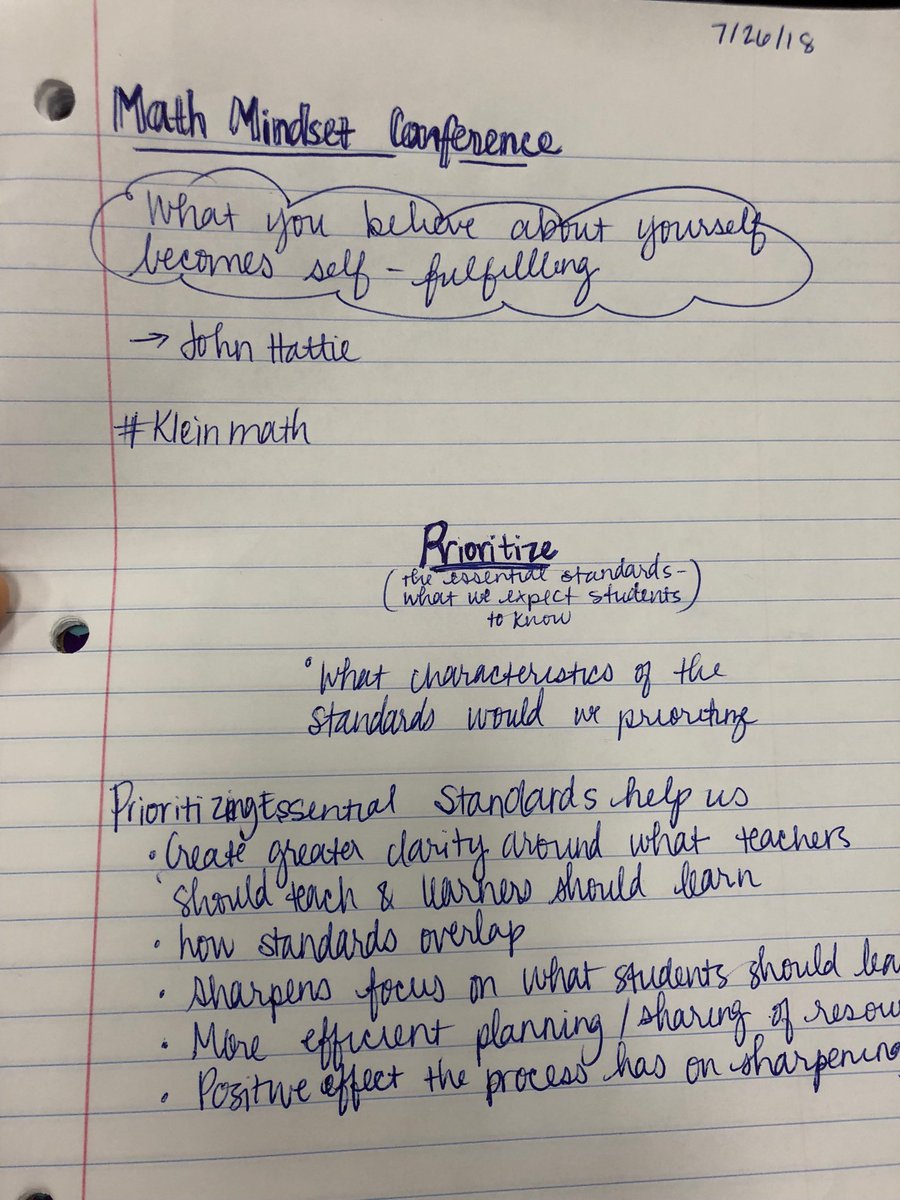 7/26/18
Math Mindset Conference
"What you believe about yourself
becomes self-fulfilling
→ John Hattie
#Kleinmath
Prioritize
(the essential standards-
what we expect students)
to know
•What characteristics of the
standards would we prioriting
Prioritizing Essential Standards help us
• Create greater clarity around what teachers
should teach & learners should learn
• how standards overlap
• sharpens focus on what students should lea
• More efficient planning/sharing of resou
• Positive effect the process has on sharpening